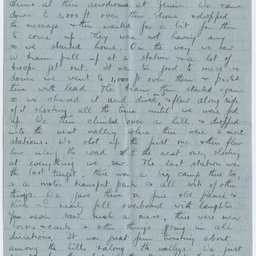 drome at their aerodrome at Jenin. We came
down to 3,000 ft. over their drome & dropped
the message & then waited for a bit for them
to come up. They were not having any
so we started home. On the way we saw
a train pull up at a station & a lot of
troops get out. It was too good to miss so
down we went to 1,000 ft over them & filled
them with lead. The train then started again
so we chased it and dived & flew along side
of it shooting all the time until we were fed
up. We then climbed over a hill & dropped
into the next valley where there were 2 more
stations. We shot up the first one & then flew
low down the road to the next one, shooting
at everything we saw. The last station was
the best target, there was a big camp there too,
& a motor transport park & all sorts of other
things. We gave them a fine old
time & nearly fell overboard with laughter.
You never saw such a mess, there were men
horses & carts & other things going in all
directions. It was great fun twisting about
among the hills & along the valleys. We just